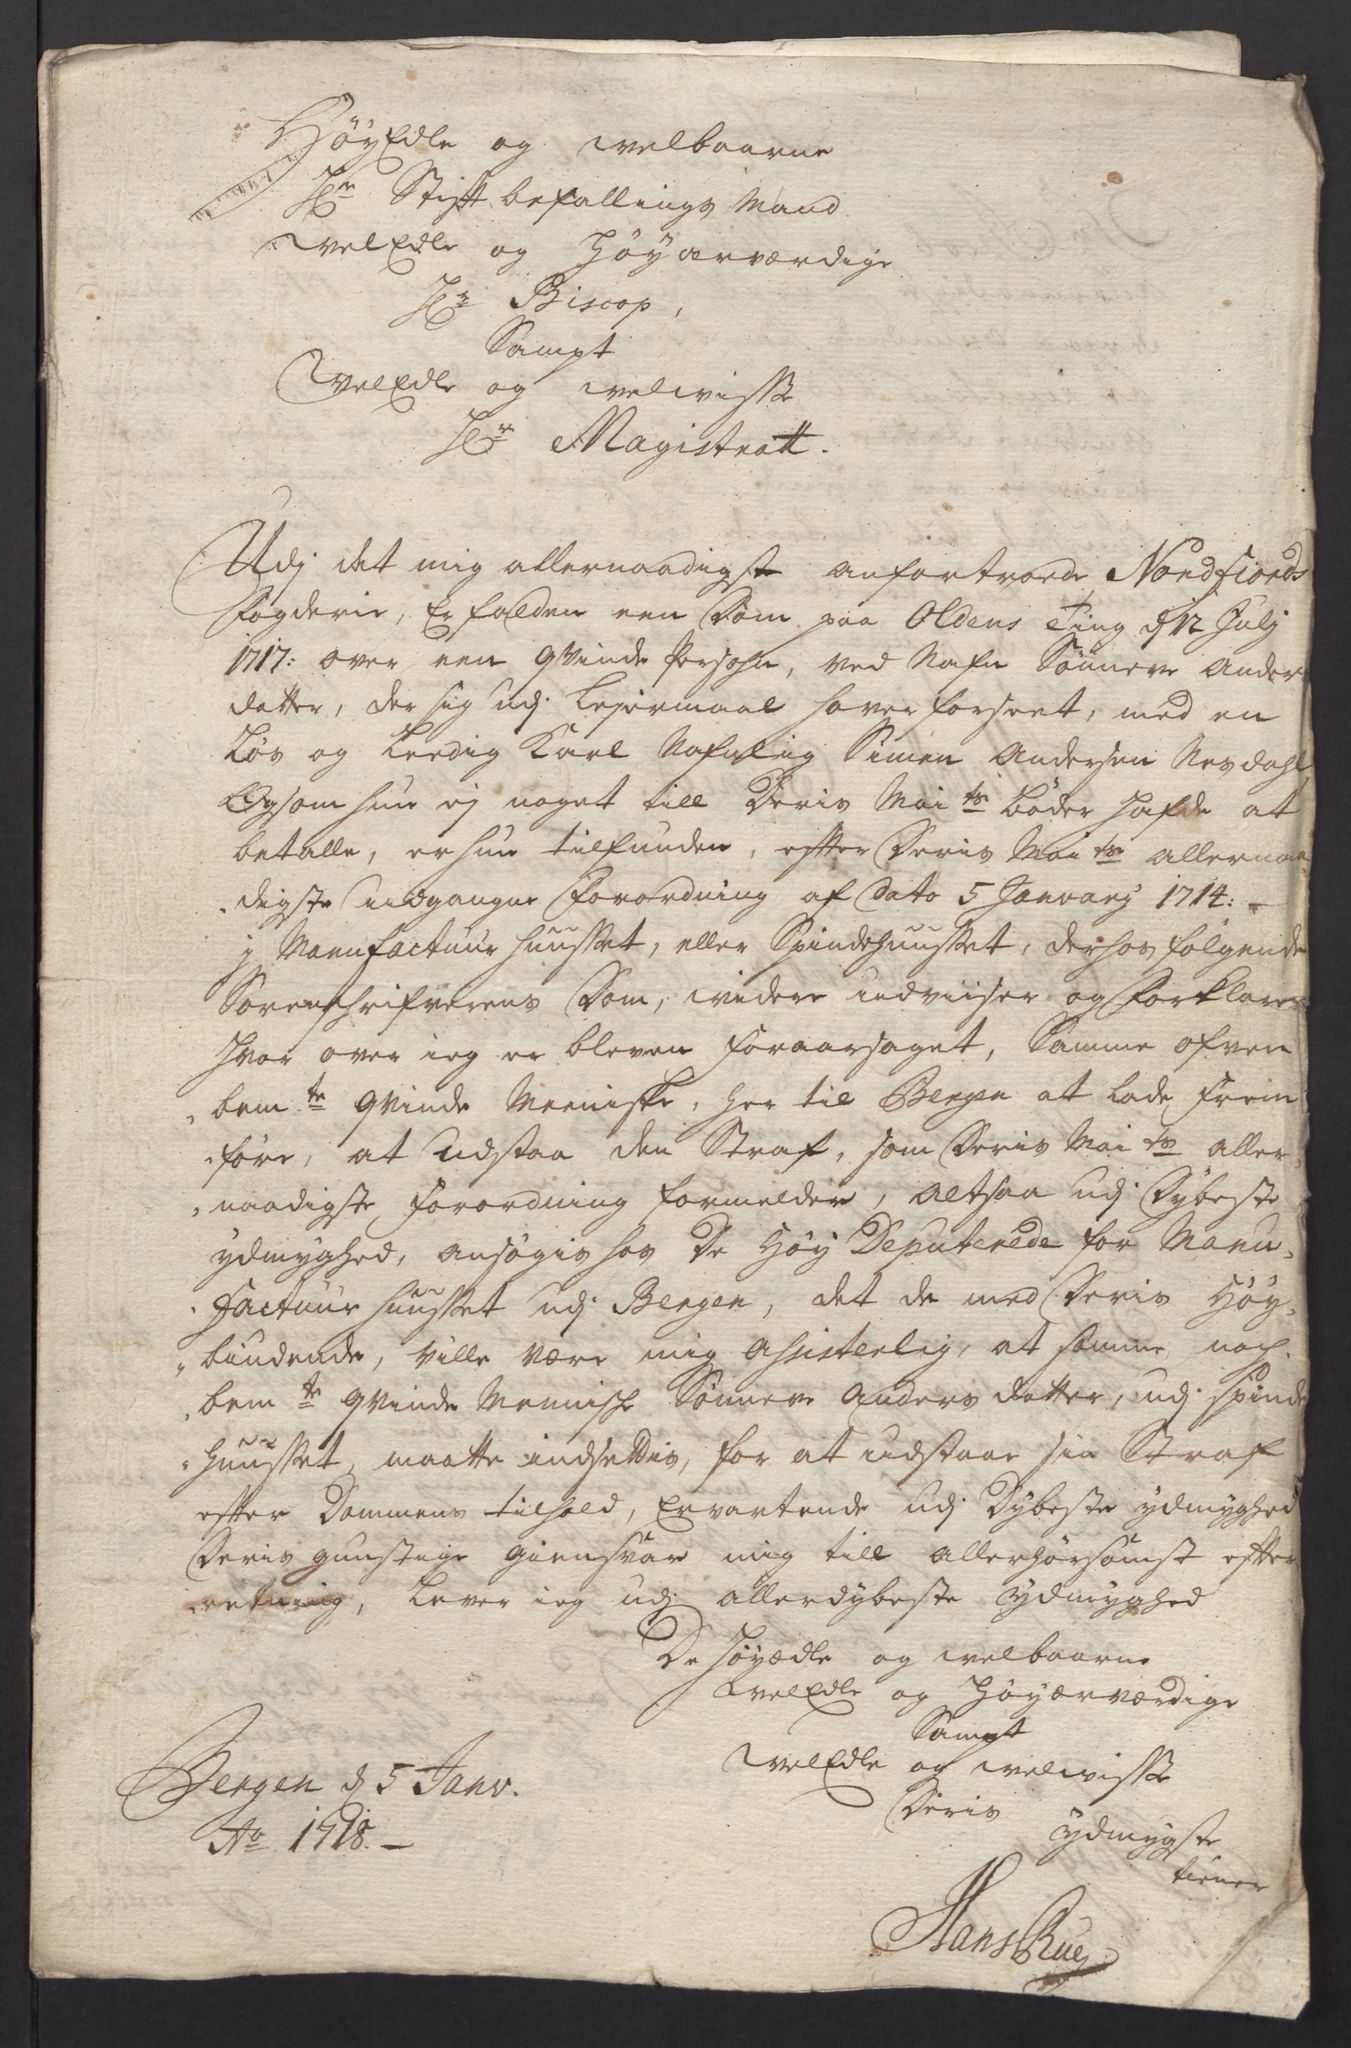 HøyEdle og welbaarne
Hr. Stiftbefallings Mand
WelEdle og Høyærværdige
Hr. Biscop,
Sampt
WelEdle og welwisse
Hr. Magistratt.
Udj det mig allernaadigst anfortroede Nordfiords
Fogderie, Er falden een Dom paa Oldens Ting d 12 Julj
1717: over een qvinde Persohn, ved Nafn Sønneve Anders
datter, der sig udj Lejermaal haver forseet, med en
Løs og Leedig Karl Nafnlig Simen Andersen Nesdahl,
Ogsom hun ej noget till Deris Mai ts Bøder hafde at
betalle, er hun tilfunden, efter Deris Mai ts allernaa
digste udgangne Forordning af Dato 5 January 1714:
j Manufactuur huusset, eller Spindehuusset, derhos følgende
Sorenschrifverens Dom, widere udviiser og Forklarer
hvor over ieg er bleven Foraarsaget, Samme ofven
bem te qvinde Menniske, her til Bergen at lade frem
føre, at udstaa den Straf, som Deris Mai ts aller
naadigste Forordning formelder, altsaa udj Dybeste
ydmyghed, ansøgis hos De Høy Deputerede for Manu
Factuur huusset udj Bergen, det de med Deris Høy
biudende, ville være mig Assisterlig, at samme noch
bem te qvinde Menniske Sønneve Anders datter, udj spinde
huusset, maatte indsettis, for at udstaae sin Straf
efter Dommens tilhold, Ervartende udj Dybeste ydmyghed
Deris gunstige giensvar mig till allerhørsomst efter
retning, Lever ieg udj allerdybeste ydmyghed
De Høyædle og welbaarne
WelEdle og Høyærværdige
Sampt
WelEdle og welwisse
Deris ydmygste
tiener
Bergen d 5 Janv.
Ao 1718.
Hans Rue